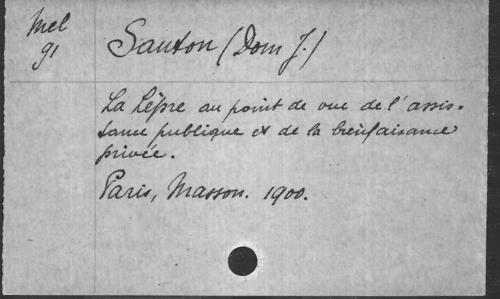 Mel
91
Sauton (Dom J.)
La Lèpre au point de vue de l'assis-
tance publique et de la bienfaisance
privée.
Paris, Masson. 1900.